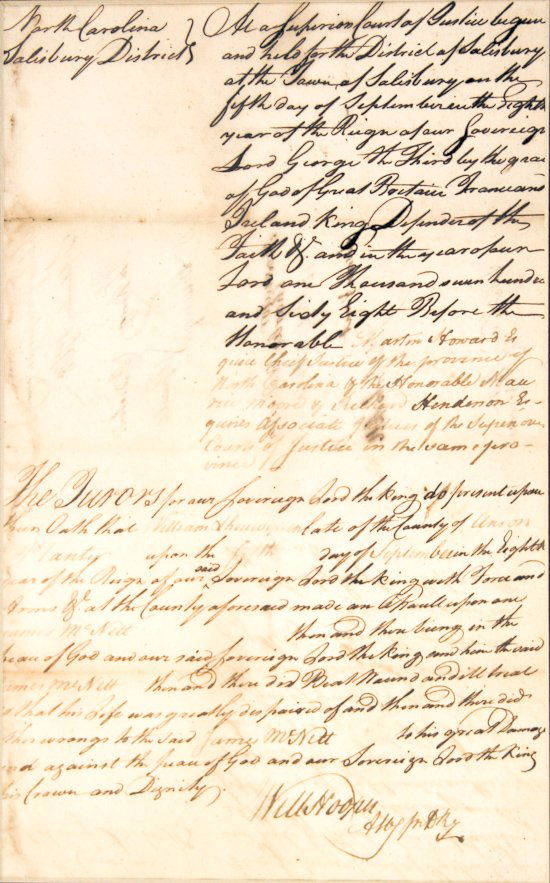 North Carolina
Salisbury District
At a Superior Court of Justice begun
and held for the District of Salisbury
at the Town of Salisbury on the
fifth day of September in the Eighth
year of the Reign of our Sovereign
Lord George the Third by the grace
of God of Great Britain France and
Ireland King Defender of the
Faith &c and in the year of our
Lord one Thousand seven hundred
and Sixty Eight Before the
Honorable Martin Howard Es-
quire Chief Justice of the province of
North Carolina & the Honorable Mau
rice Moore & Richard Henderson Es-
quires associate Justices of the Superior
Court of Justice in the same pro-
vince
The Jurors for our Sovereign Lord the King do present upon
their Oath that William late of the County of Anson
upon the day of September in the Eighth
year of the Reign of our said Sovereign Lord the King with Force and
Arms &c at the County aforesaid made an Assault upon one
James McNitt then and there being in the
peace of God and our said Sovereign Lord the King and him the said
James McNitt then and there did Beat Wound and ill treat
so that his Life was greatly despaired of and then and there did
other wrongs to the said James McNitt to his great Damage
and against the peace of God and our Sovereign Lord the King
his Crown and Dignity
Will Hooper